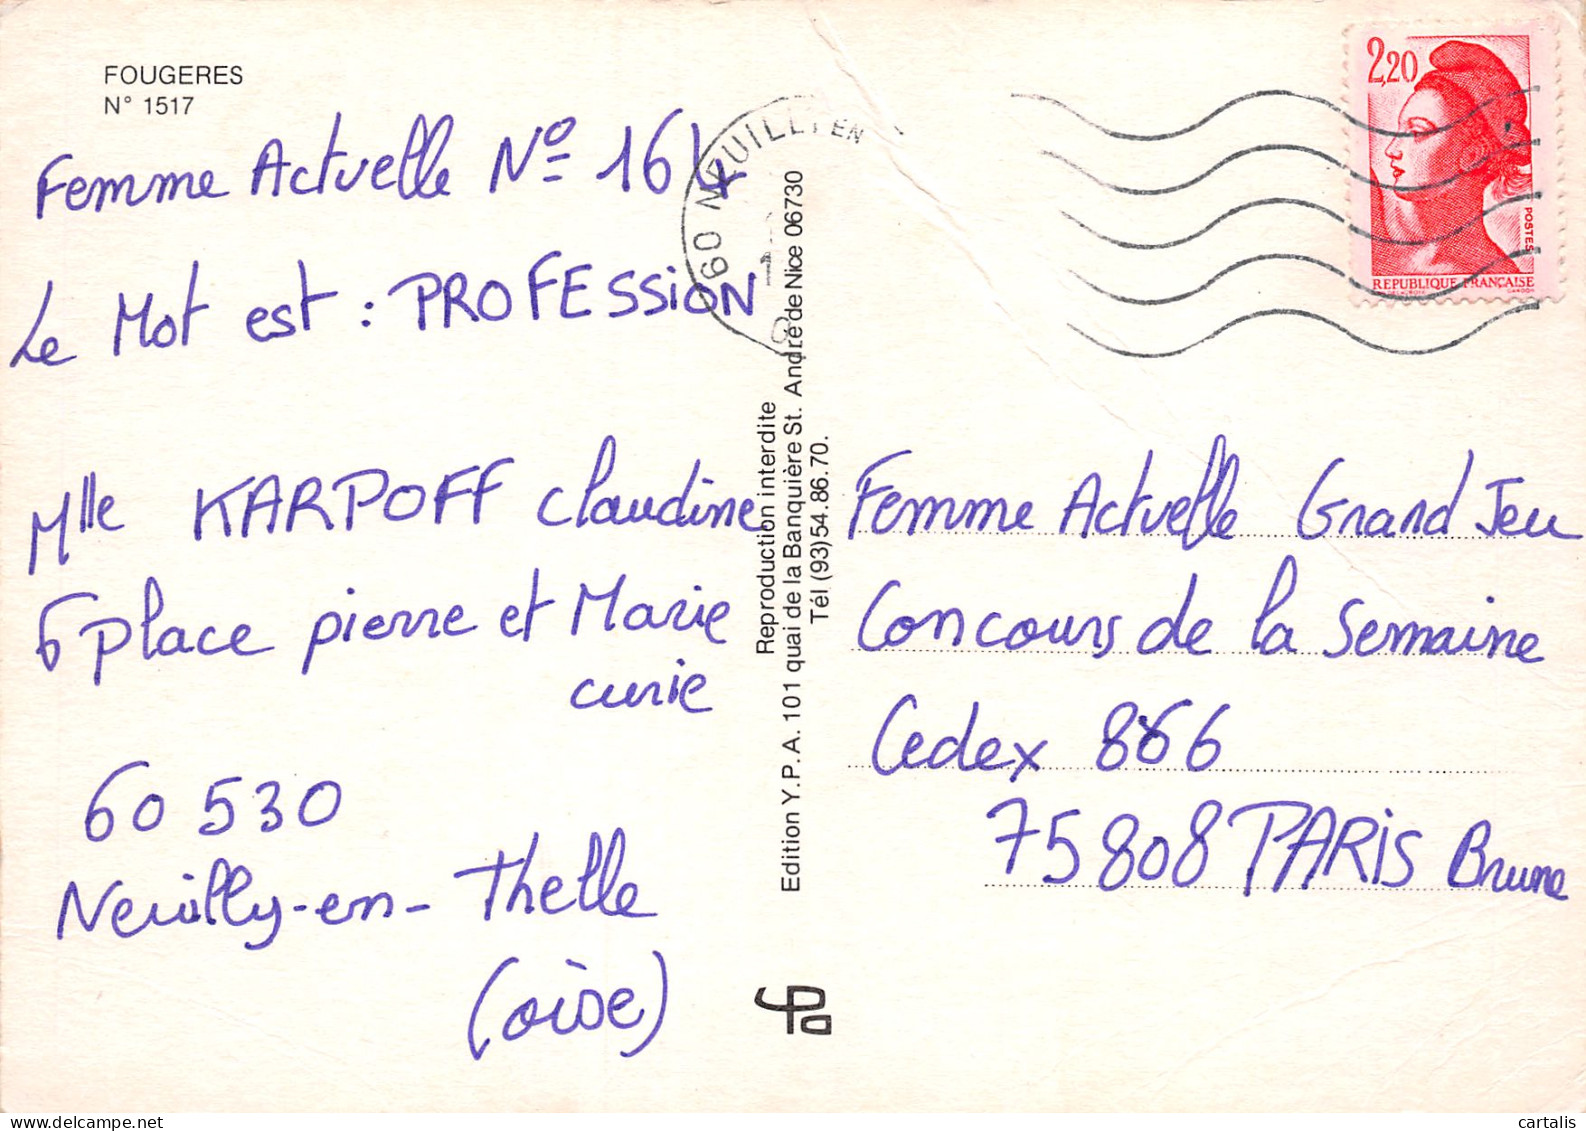 FOUGERES
N° 1517
Femme Actuelle Nº 164
Le Mot est : PROFESSION
Mlle KARPOFF Claudine
6 place pierre et Marie
curie
60 530
Neuilly-en-Thelle
(oise)
60 NEUILLY EN
Reproduction interdite
Edition Y.P.A. 101 quai de la Banquière St. André de Nice 06730
Tél (93) 54.86.70.
2,20
POSTES
REPUBLIQUE FRANÇAISE
Femme Actuelle Grand Jeu
Concours de la Semaine
Cedex 886
75808 PARIS Brune
cartalis